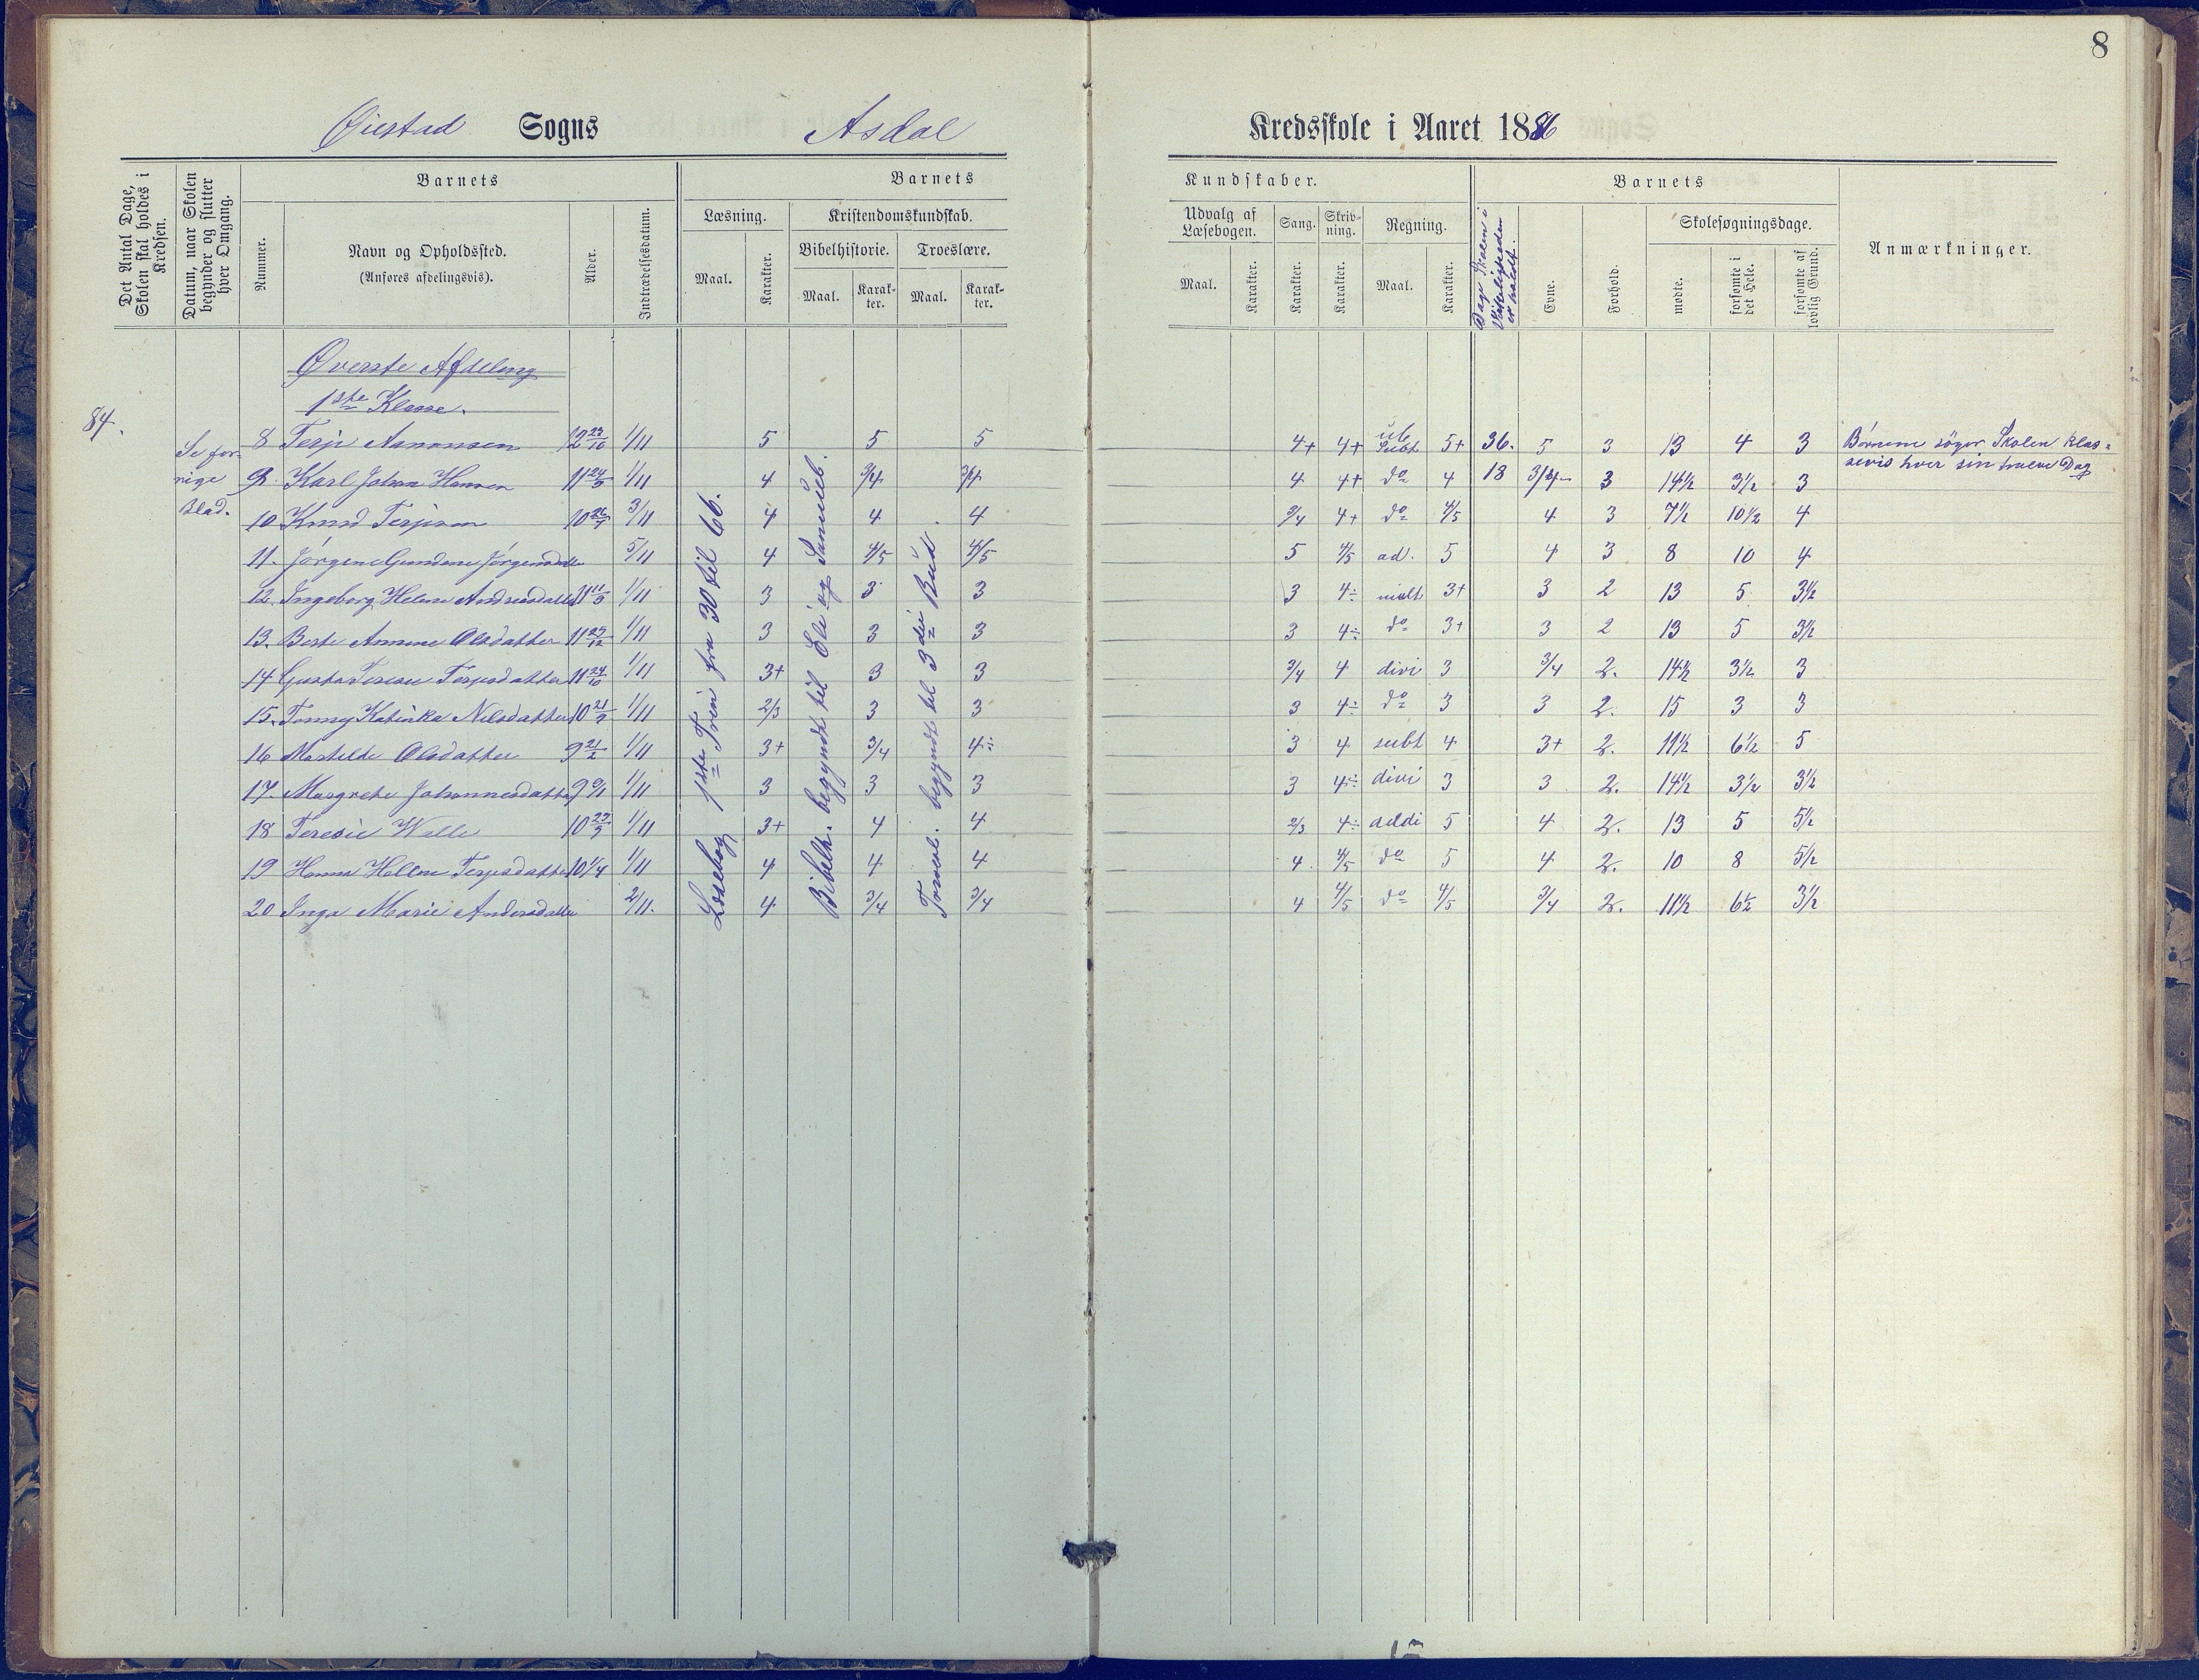 8
Øiestad Sogns Asdal Kredsskole i Aaret 1886
Det Antal Dage, Skolen skal holdes i Kredsen.
Datum, naar Skolen begynder og slutter hver Omgang.
Barnets
Nummer.
Navn og Opholdssted.
(Anføres afdelingsvis).
Alder.
Indtrædelsesdatum.
Barnets
Læsning.
Maal.
Karakter.
Kristendomskundskab.
Bibelhistorie.
Maal.
Karakter.
Troeslære.
Maal.
Karakter.
Kundskaber.
Udvalg af Læsebogen.
Maal.
Karakter.
Sang.
Karakter.
Skrivning.
Karakter.
Regning.
Maal.
Karakter.
Dage Skolen i Virkeligheden er holdt.
Barnets
Evne.
Forhold.
Skolesøgningsdage.
mødte.
forsømte i det Hele.
forsømte af lovlig Grund.
Anmærkninger.
Øverste Afdeling
1ste Klasse.
84.
Se forrige Blad.
Læsebog 1ste Trin fra 30 til 66.
Bibelh. begyndt til Eli og Samueb.
Troesl. begyndt til 3die Bud.
8 Terje Aanonsen 12 23/10 1/11 5 5 5 4+ 4+ Subt 5+ 36. 5 3 13 4 3 Børnene søger Skolen klas=
9. Karl Johan Hansen 11 24/5 1/11 4 3/4 3/4 4 4+ do 4 18 3/4- 3 14½ 3½ 3 sevis hver sin halve Dag
10 Knud Terjesen 10 26/7 3/11 4 4 4 3/4 4+ do 4/5 4 3 7½ 10½ 4
11. Jørgine Gundine Jørgensdatter 5/11 4 4/5 4/5 5 4/5 ad. 5 4 3 8 10 4
12. Ingeborg Helene Andreasdatter 11 11/3 1/11 3 3 3 3 4÷ mult 3+ 3 2 13 5 3½
13. Berte Annine Olsdatter 11 25/12 1/11 3 3 3 3 4÷ do 3+ 3 2 13 5 3½
14 Gusta Terese Terjesdatter 11 24/10 1/11 3+ 3 3 3/4 4 divi 3 3/4 2. 14½ 3½ 3
15. Tomny Katinka Nilsdatter 10 21/9 1/11 2/3 3 3 3 4÷ do 3 3 2. 15 3 3
16 Mathilde Olsdatter 9 21/2 1/11 3+ 3/4 4÷ 3 4 subt 4 3+ 2. 11½ 6½ 5
17. Margrete Johannesdatter 9 9/11 1/11 3 3 3 3 4÷ divi 3 3 2. 14½ 3½ 3½
18 Teresie Walle 10 27/9 1/11 3+ 4 4 2/3 4÷ addi 5 4 2. 13 5 5½
19 Hanna Helene Terjesdatter 10 1/4 1/11 4 4 4 4 4/5 do 5 4 2. 10 8 5½
20 Inga Marie Andersdatter 2/11. 4 3/4 3/4 4 4/5 do 4/5 3/4 2. 11½ 6½ 3½